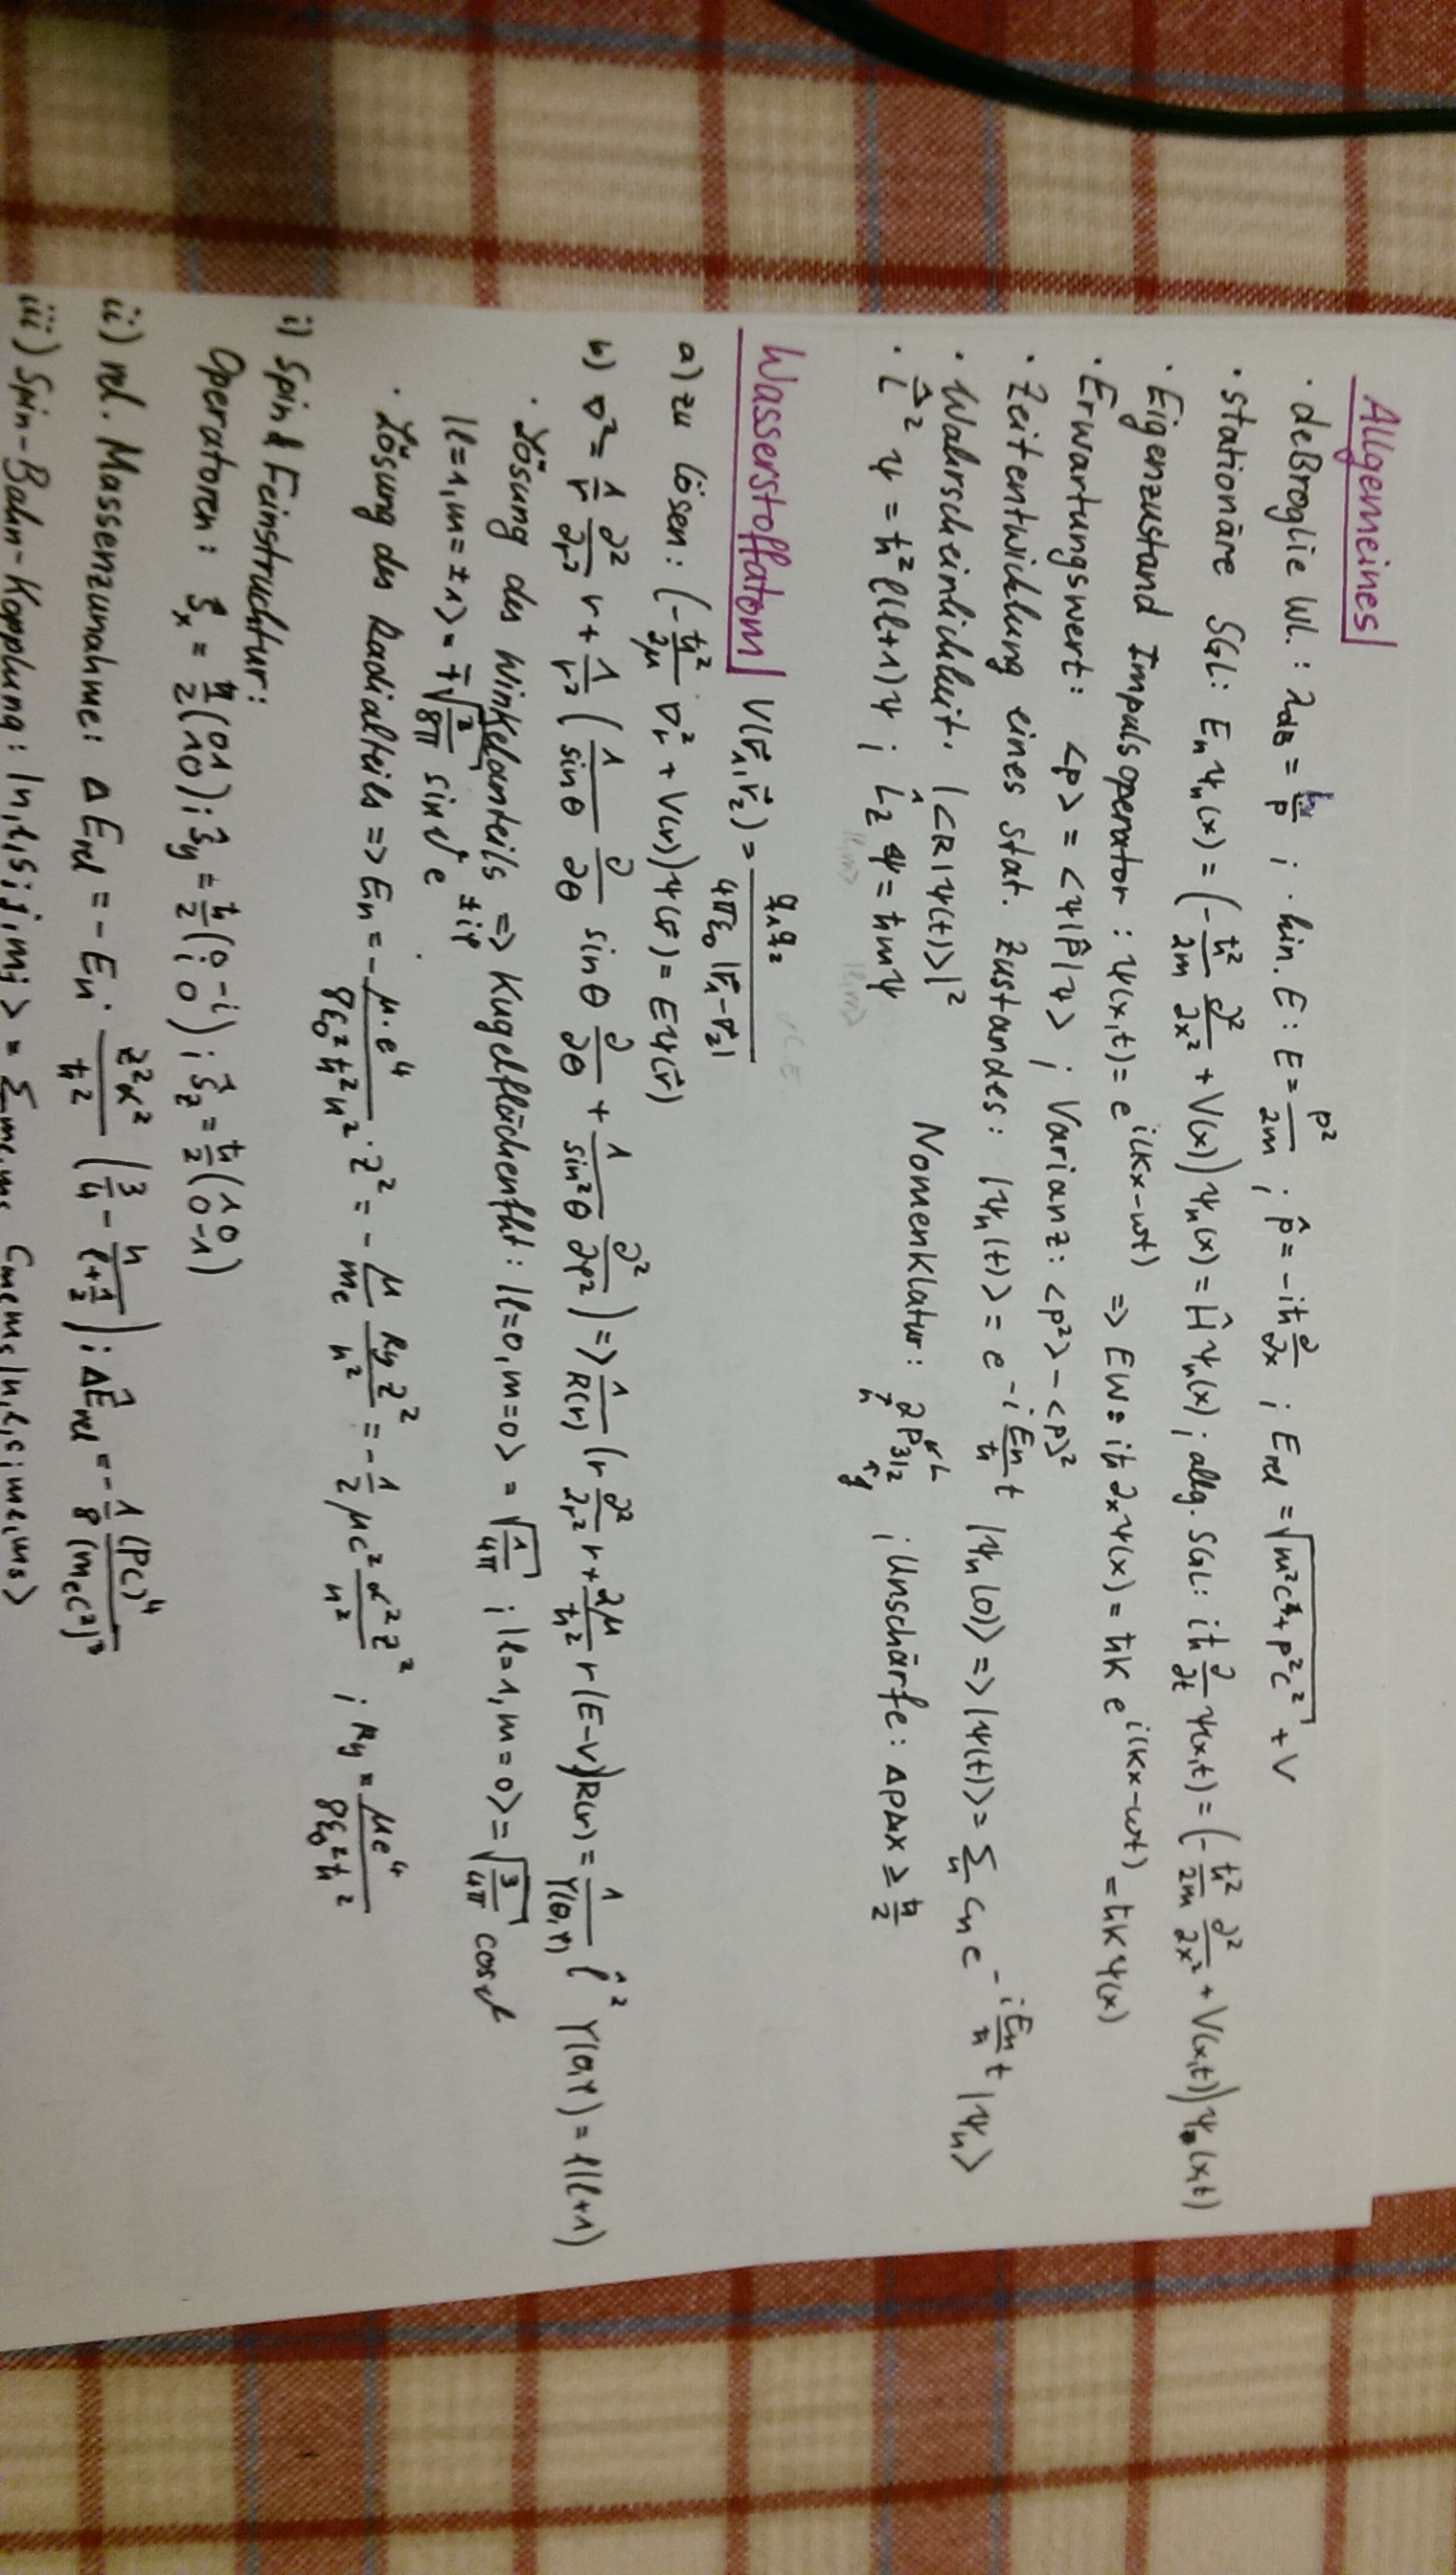 Allgemeines
· deBroglie Wl.: λ_dB = h/p ; · kin. E: E = p²/2m ; p̂ = -iħ ∂/∂x ; E_rel = √(m²c⁴ + p²c²) + V
· stationäre SGL: E_n ψ_n(x) = (-ħ²/2m ∂²/∂x² + V(x)) ψ_n(x) = Ĥ ψ_n(x) ; allg. SGL: iħ ∂/∂t ψ(x,t) = (-ħ²/2m ∂²/∂x² + V(x,t)) ψ(x,t)
· Eigenzustand Impulsoperator: ψ(x,t) = e^{i(kx-ωt)} => EW: iħ ∂_x ψ(x) = ħk e^{i(kx-ωt)} = ħk ψ(x)
· Erwartungswert: <p> = <ψ|p̂|ψ> ; Varianz: <p²> - <p>²
· Zeitentwicklung eines stat. Zustandes: |ψ_n(t)> = e^{-i E_n/ħ t} |ψ_n(0)> => |ψ(t)> = Σ_n c_n e^{-i E_n/ħ t} |ψ_n>
· Wahrscheinlichkeit: |<R|ψ(t)>|²
· L̂² ψ = ħ² l(l+1) ψ ; L̂_z ψ = ħmψ Nomenklatur: 2P_{3/2} ↑n ↙L ↑J ; Unschärfe: ΔpΔx ≥ ħ/2
Wasserstoffatom V(r⃗₁,r⃗₂) = q₁q₂ / 4πε₀|r⃗₁-r⃗₂|
a) zu lösen: (-ħ²/2μ ∇_r² + V(r)) ψ(r⃗) = Eψ(r⃗)
b) ∇² = 1/r ∂²/∂r² r + 1/r² (1/sinθ ∂/∂θ sinθ ∂/∂θ + 1/sin²θ ∂²/∂φ²) => 1/R(r) (r ∂²/∂r² r + 2μ/ħ² r (E-V)) R(r) = 1/Y(θ,φ) l̂² Y(θ,φ) = l(l+1)
· Lösung des Winkelanteils => Kugelflächenfkt: |l=0, m=0> = √(1/4π) ; |l=1, m=0> = √(3/4π) cosϑ
|l=1, m=±1> = ∓√(3/8π) sinϑ e^{±iφ}
· Lösung des Radialteils => E_n = - μ·e⁴ / 8ε₀²ħ²n² · Z² = - μ/m_e Ry Z²/n² = -1/2 μc² α²Z²/n² ; Ry = μe⁴ / 8ε₀²ħ²
i) Spin & Feinstruktur:
Operatoren: Ŝ_x = ħ/2 (0 1; 1 0) ; Ŝ_y = ħ/2 (0 -i; i 0) ; Ŝ_z = ħ/2 (1 0; 0 -1)
ii) rel. Massenzunahme: ΔE_rel = -E_n · Z²α²/n² (3/4 - n/(l+1/2)) ; ΔÊ_rel = -1/8 (pc)⁴/(m_e c²)³
iii) Spin-Bahn-Kopplung: |n,l,s;j,mj> = Σ_{ml,ms} C_{ml ms} |n,l,s;ml,ms>